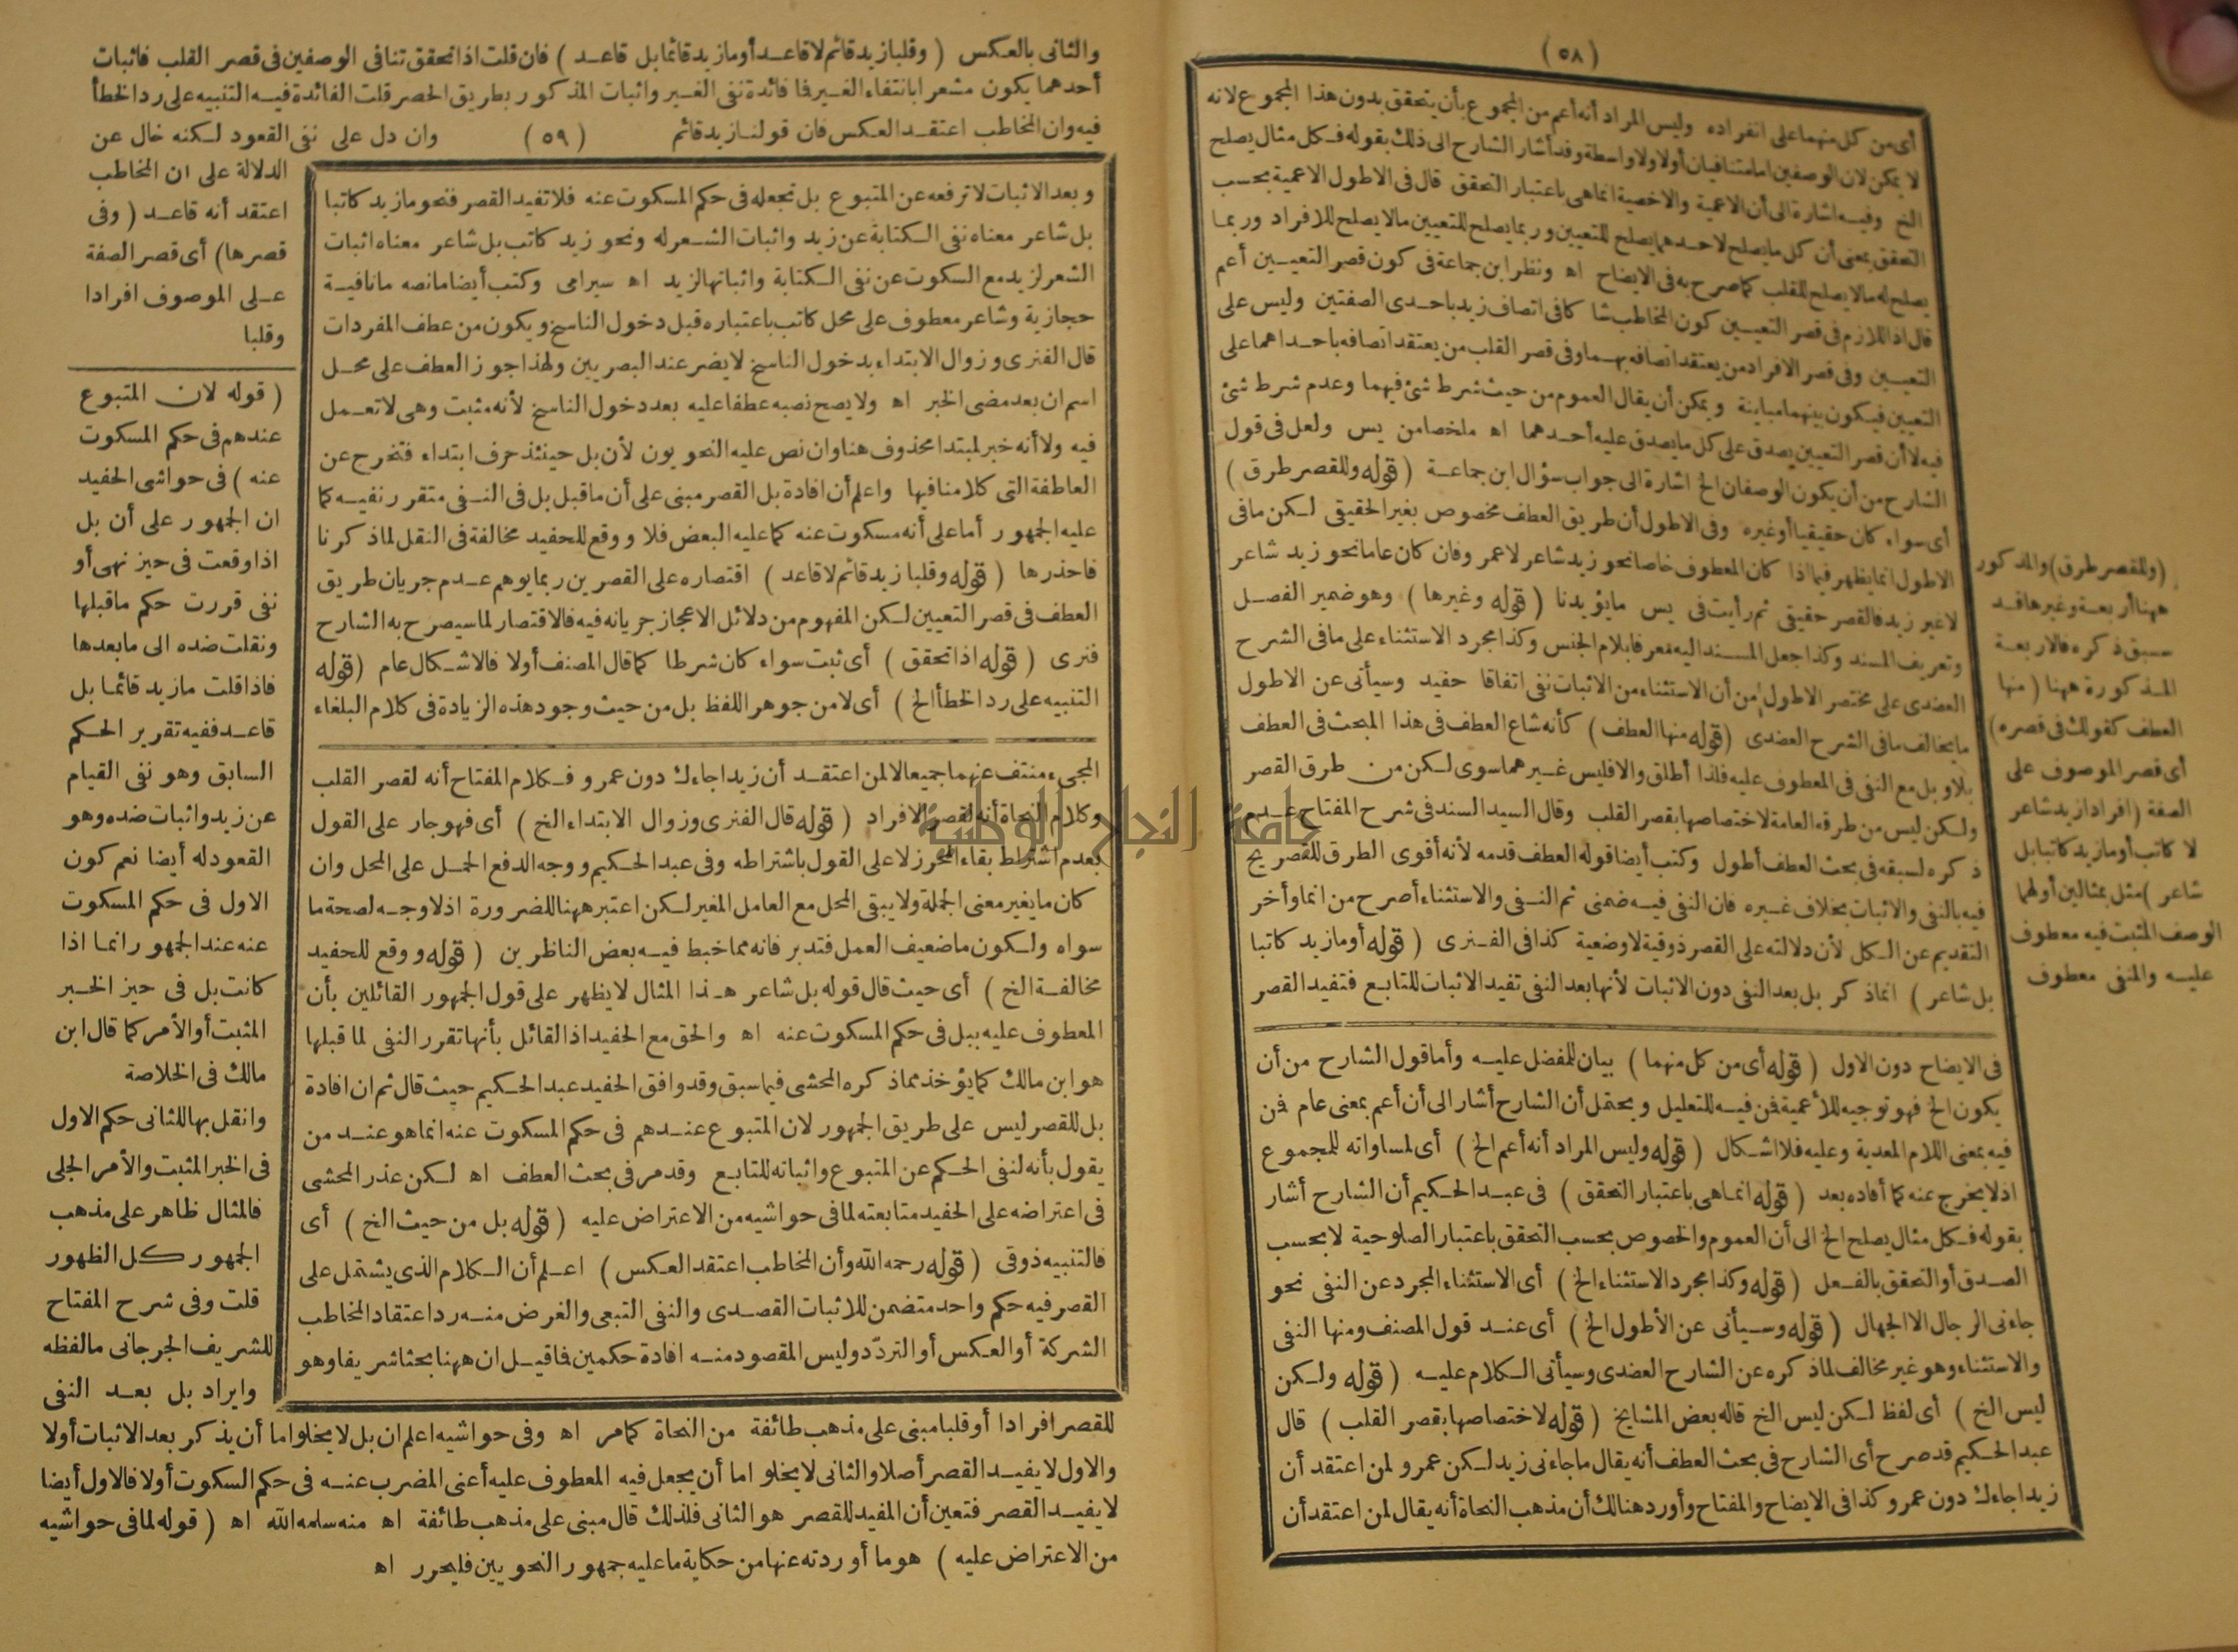 (٥٨)
أى من كل منهما على انفراده وليس المراد أنه أعم من المجموع بأن يتحقق بدون هذا المجموع لانه
لا يمكن لان الوصفين اما متنافيان أولا ولا واسطة وقد أشار الشارح الى ذلك بقوله فكل مثال يصلح
الخ وفيه اشارة الى أن الاعمية والاخصية انما هى باعتبار التحقق قال فى الاطول الاعمية بحسب
التحقق بمعنى أن كل ما يصلح لاحدهما يصلح للتعيين وربما يصلح للتعيين مالا يصلح للافراد وربما
يصلح له مالا يصلح للقلب كما صرح به فى الايضاح اه ونظر ابن جماعة فى كون قصر التعيين أعم
قال اذ اللازم فى قصر التعيين كون المخاطب شا كافى اتصاف زيد باحدى الصفتين وليس على
التعيين وفى قصر الافراد من يعتقد اتصافه بهما وفى قصر القلب من يعتقد اتصافه باحداهما على
التعيين فيكون بينهما مباينة ويمكن أن يقال العموم من حيث شرط شئ فيهما وعدم شرط شئ
فيه لا أن قصر التعيين يصدق على كل ما يصدق عليه أحدهما اه ملخصا من يس ولعل فى قول
الشارح من أن يكون الوصفان الخ اشارة الى جواب سؤال ابن جماعة (قوله وللقصر طرق)
أى سواء كان حقيقيا أو غيره وفى الاطول أن طريق العطف مخصوص بغير الحقيقى لكن ما فى
الاطول انما يظهر فيما اذا كان المعطوف خاصا نحو زيد شاعر لا عمرو فان كان عاما نحو زيد شاعر
لا غير زيد فالقصر حقيقى ثم رأيت فى يس ما يؤيدنا (قوله وغيرها) وهو ضمير الفصل
وتعريف المسند وكذا جعل المسند اليه معرفا بلام الجنس وكذا مجرد الاستثناء على ما فى الشرح
العضدى على مختصر الاطول من أن الاستثناء من الاثبات نفى اتفاقا حفيد وسيأتى عن الاطول
ما يخالف ما فى الشرح العضدى (قوله منها العطف) كأنه شاع العطف فى هذا المبحث فى العطف
بلا وبل مع النفى فى المعطوف عليه فلذا أطلق والا فليس غيرهما سوى لكن من طرق القصر
ولكن ليس من طرقه العامة لاختصاصها بقصر القلب وقال السيد السند فى شرح المفتاح عدم
ذكره لسبقه فى بحث العطف أطول وكتب أيضا قوله العطف قدمه لأنه أقوى الطرق للتصريح
فيه بالنفى والاثبات بخلاف غيره فان النفى فيه ضمنى ثم النفى والاستثناء أصرح من انما وأخر
التقديم عن الكل لأن دلالته على القصر ذوقية لا وضعية كذا فى الفنرى (قوله أو ما زيد كاتبا
بل شاعر) انما ذكر بل بعد النفى دون الاثبات لأنها بعد النفى تفيد الاثبات للتابع فتفيد القصر
(وللقصر طرق) والمذكور
ههنا أربعة وغيرها قد
سبق ذكره فالاربعة
المذكورة ههنا (منها
العطف كقولك فى قصره)
أى قصر الموصوف على
الصفة (افرادا زيد شاعر
لا كاتب أو ما زيد كاتبا بل
شاعر) مثل بمثالين أولهما
الوصف المثبت فيه معطوف
عليه والمنفى معطوف
فى الايضاح دون الاول (قوله أى من كل منهما) بيان للمفضل عليه وأما قول الشارح من أن
يكون الخ فهو توجيه للأعمية فمن فيه للتعليل ويحتمل أن الشارح أشار الى أن أعم بمعنى عام فمن
فيه بمعنى اللام المعدية وعليه فلا اشكال (قوله وليس المراد أنه أعم الخ) أى لمساواته للمجموع
اذ لا يخرج عنه كما أفاده بعد (قوله انما هى باعتبار التحقق) فى عبد الحكيم أن الشارح أشار
بقوله فكل مثال يصلح الخ الى أن العموم والخصوص بحسب التحقق باعتبار الصلوحية لا بحسب
الصدق أو التحقق بالفعل (قوله وكذا مجرد الاستثناء الخ) أى الاستثناء المجرد عن النفى نحو
جاءنى الرجال الا الجهال (قوله وسيأتى عن الأطول الخ) أى عند قول المصنف ومنها النفى
والاستثناء وهو غير مخالف لما ذكره عن الشارح العضدى وسيأتى الكلام عليه (قوله ولكن
ليس الخ) أى لفظ لكن ليس الخ قاله بعض المشايخ (قوله لاختصاصها بقصر القلب) قال
عبد الحكيم قد صرح أى الشارح فى بحث العطف أنه يقال ما جاءنى زيد لكن عمرو لمن اعتقد أن
زيدا جاءك دون عمرو وكذا فى الايضاح والمفتاح وأورد هنالك أن مذهب النحاة أنه يقال لمن اعتقد أن
والثانى بالعكس (وقلبا زيد قائم لا قاعد أو ما زيد قائما بل قاعد) فان قلت اذا تحقق تنافى الوصفين فى قصر القلب فاثبات
أحدهما يكون مشعرا بانتفاء الغير فما فائدة نفى الغير واثبات المذكور بطريق الحصر قلت الفائدة فيه التنبيه على رد الخطأ
فيه وان المخاطب اعتقد العكس فان قولنا زيد قائم (٥٩) وان دل على نفى القعود لكنه خال عن
الدلالة على ان المخاطب
اعتقد أنه قاعد (وفى
قصرها) أى قصر الصفة
على الموصوف افرادا
وقلبا
وبعد الاثبات لا ترفعه عن المتبوع بل تجعله فى حكم المسكوت عنه فلا تفيد القصر فنحو ما زيد كاتبا
بل شاعر معناه نفى الكتابة عن زيد واثبات الشعر له ونحو زيد كاتب بل شاعر معناه اثبات
الشعر لزيد مع السكوت عن نفى الكتابة واثباتها لزيد اه سيرامى وكتب أيضا ما نصه ما نافية
حجازية وشاعر معطوف على محل كاتب باعتباره قبل دخول الناسخ ويكون من عطف المفردات
قال الفنرى وزوال الابتداء بدخول الناسخ لا يضر عند البصريين ولهذا جوز العطف على محل
اسم ان بعد مضى الخبر اه ولا يصح نصبه عطفا عليه بعد دخول الناسخ لأنه مثبت وهى لا تعمل
فيه ولا أنه خبر لمبتدا محذوف هنا وان نص عليه النحويون لأن بل حينئذ حرف ابتداء فتخرج عن
العاطفة التى كلامنا فيها واعلم أن افادة بل القصر مبنى على أن ما قبل بل فى النفى متقرر نفيه كما
عليه الجمهور أما على أنه مسكوت عنه كما عليه البعض فلا ووقع للحفيد مخالفة فى النقل لما ذكرنا
فاحذرها (قوله وقلبا زيد قائم لا قاعد) اقتصاره على القصرين ربما يوهم عدم جريان طريق
العطف فى قصر التعيين لكن المفهوم من دلائل الاعجاز جريانه فيه فالاقتصار لما سيصرح به الشارح
فنرى (قوله اذا تحقق) أى ثبت سواء كان شرطا كما قال المصنف أولا فالاشكال عام (قوله
التنبيه على رد الخطأ الخ) أى لا من جوهر اللفظ بل من حيث وجود هذه الزيادة فى كلام البلغاء
المجىء منتف عنهما جميعا لا لمن اعتقد أن زيدا جاءك دون عمرو فكلام المفتاح أنه لقصر القلب
وكلام النحاة أنه لقصر الافراد (قوله قال الفنرى وزوال الابتداء الخ) أى فهو جار على القول
بعدم اشتراط بقاء المحرز لا على القول باشتراطه وفى عبد الحكيم ووجه الدفع الحمل على المحل وان
كان ما يغير معنى الجملة ولا يبقى المحل مع العامل المغير لكن اعتبر ههنا للضرورة اذ لا وجه لصحة ما
سواه ولكون ما ضعيف العمل فتدبر فانه مما خبط فيه بعض الناظرين (قوله ووقع للحفيد
مخالفة الخ) أى حيث قال قوله بل شاعر هذا المثال لا يظهر على قول الجمهور القائلين بأن
المعطوف عليه ببل فى حكم المسكوت عنه اه والحق مع الحفيد اذ القائل بأنها تقرر النفى لما قبلها
هو ابن مالك كما يؤخذ مما ذكره المحشى فيما سبق وقد وافق الحفيد عبد الحكيم حيث قال ثم ان افادة
بل للقصر ليس على طريق الجمهور لان المتبوع عندهم فى حكم المسكوت عنه انما هو عند من
يقول بأنه لنفى الحكم عن المتبوع واثباته للتابع وقد مر فى بحث العطف اه لكن عذر المحشى
فى اعتراضه على الحفيد متابعته لما فى حواشيه من الاعتراض عليه (قوله بل من حيث الخ) أى
فالتنبيه ذوقى (قوله رحمه الله وأن المخاطب اعتقد العكس) اعلم أن الكلام الذى يشتمل على
القصر فيه حكم واحد متضمن للاثبات القصدى والنفى التبعى والغرض منه رد اعتقاد المخاطب
الشركة أو العكس أو التردّد وليس المقصود منه افادة حكمين فما قيل ان ههنا بحثا شريفا وهو
(قوله لان المتبوع
عندهم فى حكم المسكوت
عنه) فى حواشى الحفيد
ان الجمهور على أن بل
اذا وقعت فى حيز نهى أو
نفى قررت حكم ما قبلها
ونقلت ضده الى ما بعدها
فاذا قلت ما زيد قائما بل
قاعد ففيه تقرير الحكم
السابق وهو نفى القيام
عن زيد واثبات ضده وهو
القعود له أيضا نعم كون
الاول فى حكم المسكوت
عنه عند الجمهور انما اذا
كانت بل فى حيز الخبر
المثبت أو الأمر كما قال ابن
مالك فى الخلاصة
وانقل بها للثانى حكم الاول
فى الخبر المثبت والأمر الجلى
فالمثال ظاهر على مذهب
الجمهور كل الظهور
قلت وفى شرح المفتاح
للشريف الجرجانى ما لفظه
وايراد بل بعد النفى
للقصر افرادا أو قلبا مبنى على مذهب طائفة من النحاة كما مر اه وفى حواشيه اعلم ان بل لا يخلو اما أن يذكر بعد الاثبات أولا
والاول لا يفيد القصر أصلا والثانى لا يخلو اما أن يجعل فيه المعطوف عليه أعنى المضرب عنه فى حكم السكوت أولا فالاول أيضا
لا يفيد القصر فتعين أن المفيد للقصر هو الثانى فلذلك قال مبنى على مذهب طائفة اه منه سلمه الله اه (قوله لما فى حواشيه
من الاعتراض عليه) هو ما أوردته عنها من حكاية ما عليه جمهور النحويين فليحرر اه
جامعة النجاح الوطنية